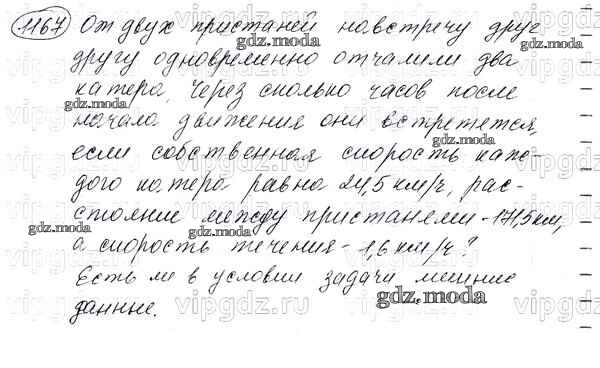 1167 От двух пристаней навстречу друг
другу одновременно отчалили два
катера. Через сколько часов после
начала движения они встретятся,
если собственная скорость каж-
дого катера равна 24,5 км/ч, рас-
стояние между пристанями - 171,5 км,
а скорость течения - 1,6 км/ч?
Есть ли в условии задачи лишние
данные.
gdz.moda
vipgdz.ru